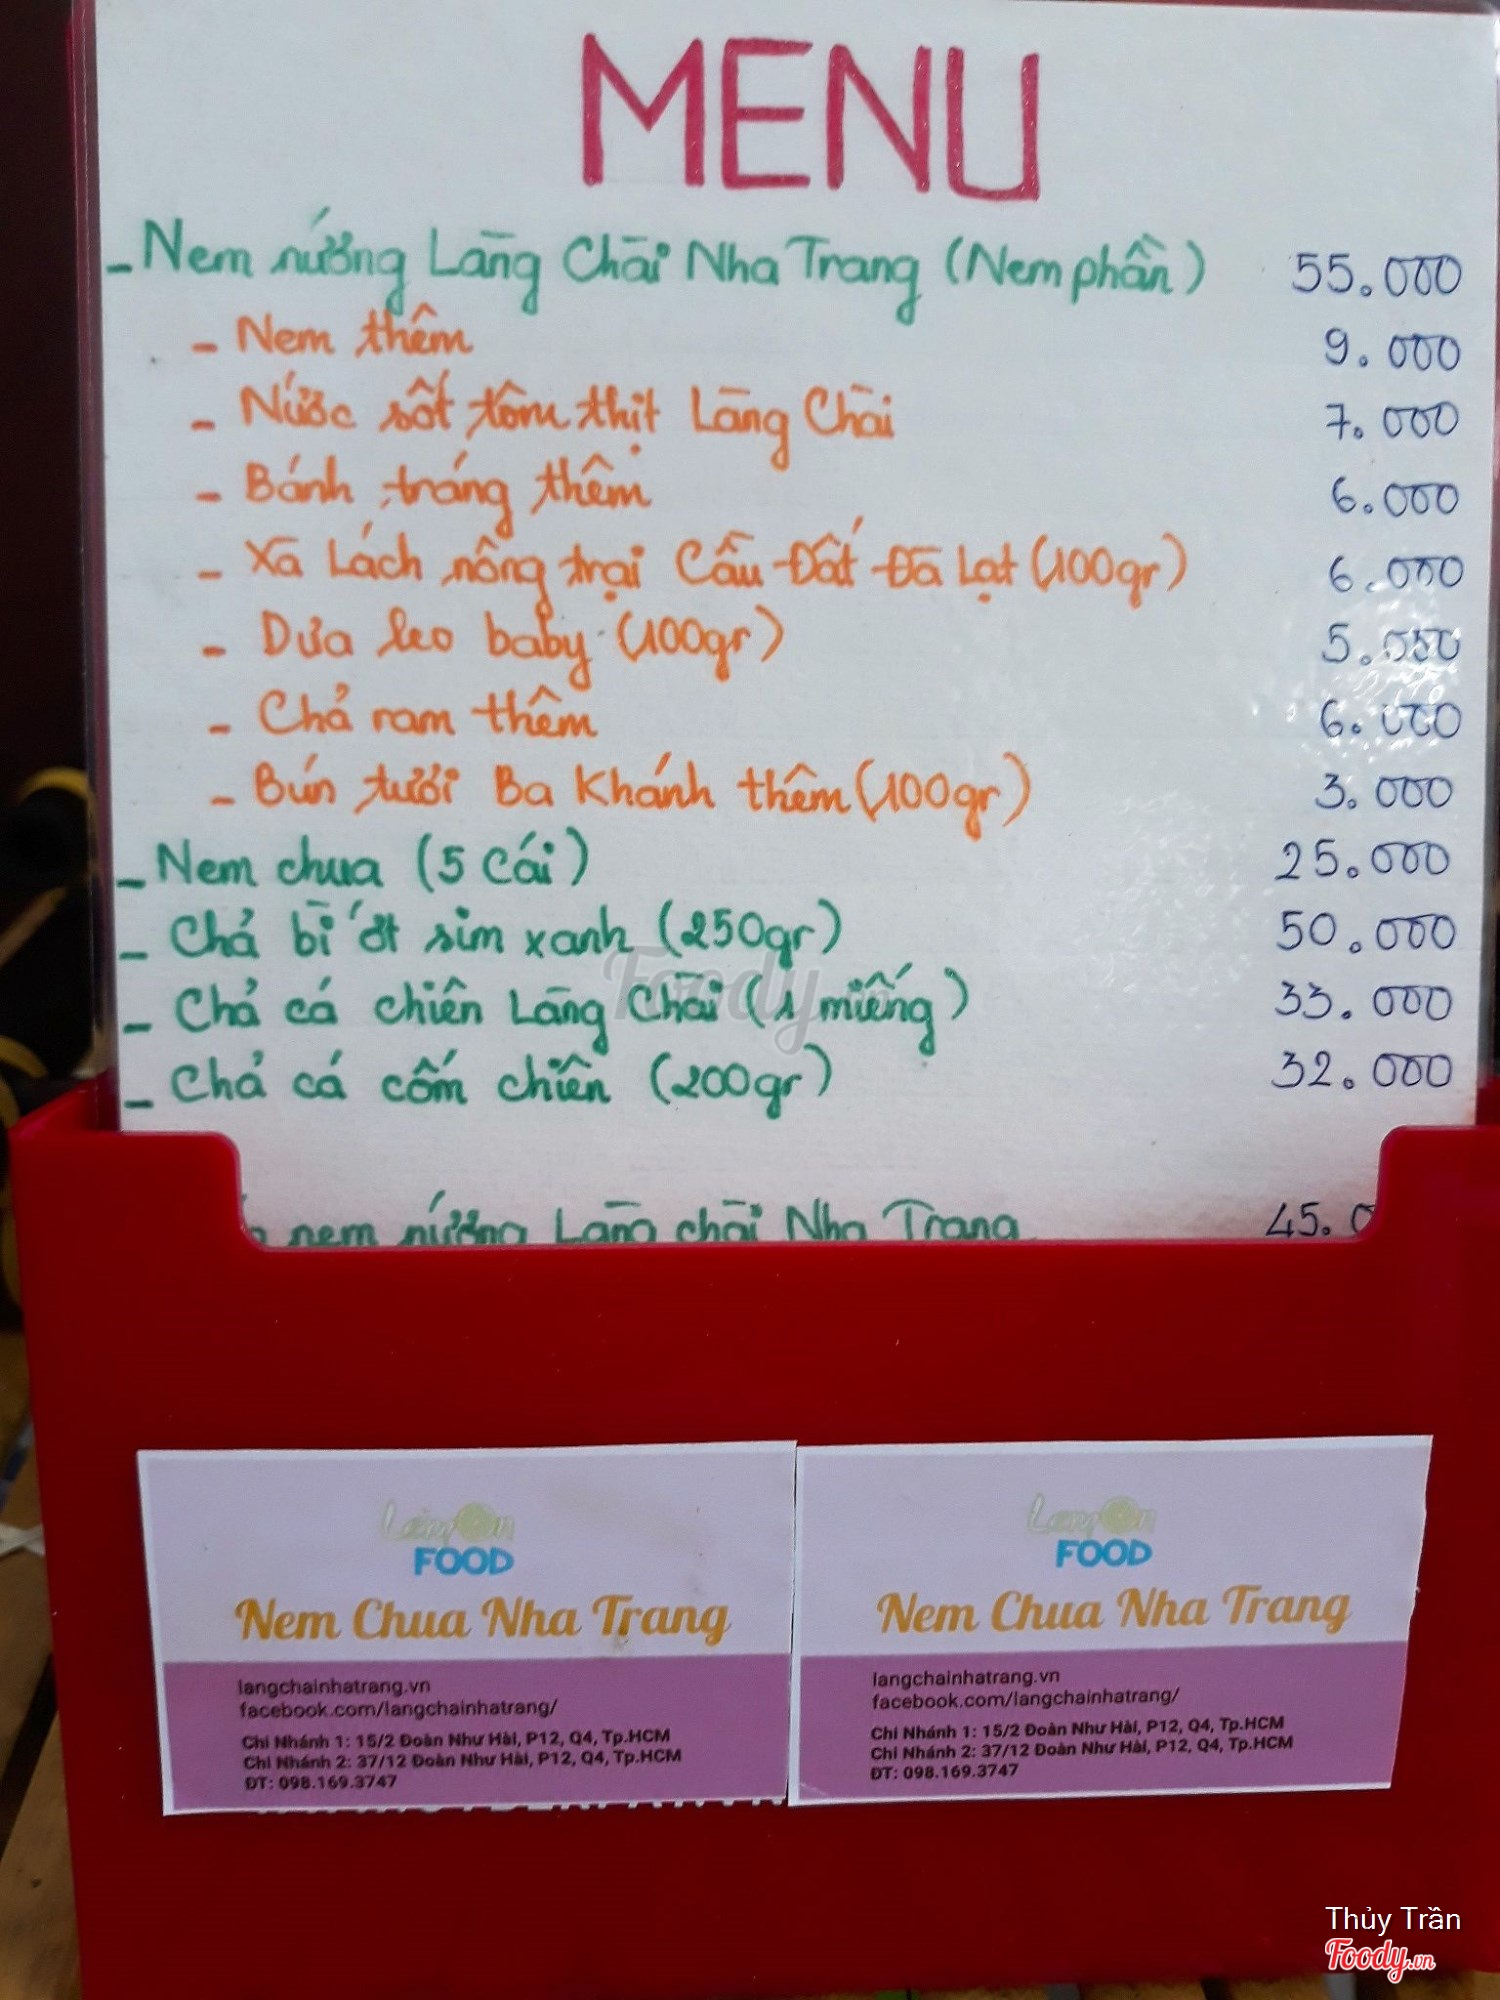 MENU
- Nem nướng Làng Chài Nha Trang (Nem phần) 55.000
- Nem thêm 9.000
- Nước sốt tôm thịt Làng Chài 7.000
- Bánh tráng thêm 6.000
- Xà Lách nông trại Cầu Đất Đà Lạt (100gr) 6.000
- Dưa leo baby (100gr) 5.000
- Chả ram thêm 6.000
- Bún tươi Ba Khánh thêm (100gr) 3.000
- Nem chua (5 Cái) 25.000
- Chả bì ớt sim xanh (250gr) 50.000
- Chả cá chiên Làng Chài (1 miếng) 33.000
- Chả cá cốm chiên (200gr) 32.000
nem nướng Làng chài Nha Trang 45.0
Foody.vn
Lemon
FOOD
Nem Chua Nha Trang
langchainhatrang.vn
facebook.com/langchainhatrang/
Chi Nhánh 1: 15/2 Đoàn Như Hài, P12, Q4, Tp.HCM
Chi Nhánh 2: 37/12 Đoàn Như Hài, P12, Q4, Tp.HCM
ĐT: 098.169.3747
Lemon
FOOD
Nem Chua Nha Trang
langchainhatrang.vn
facebook.com/langchainhatrang/
Chi Nhánh 1: 15/2 Đoàn Như Hài, P12, Q4, Tp.HCM
Chi Nhánh 2: 37/12 Đoàn Như Hài, P12, Q4, Tp.HCM
ĐT: 098.169.3747
Thủy Trần
Foody.vn